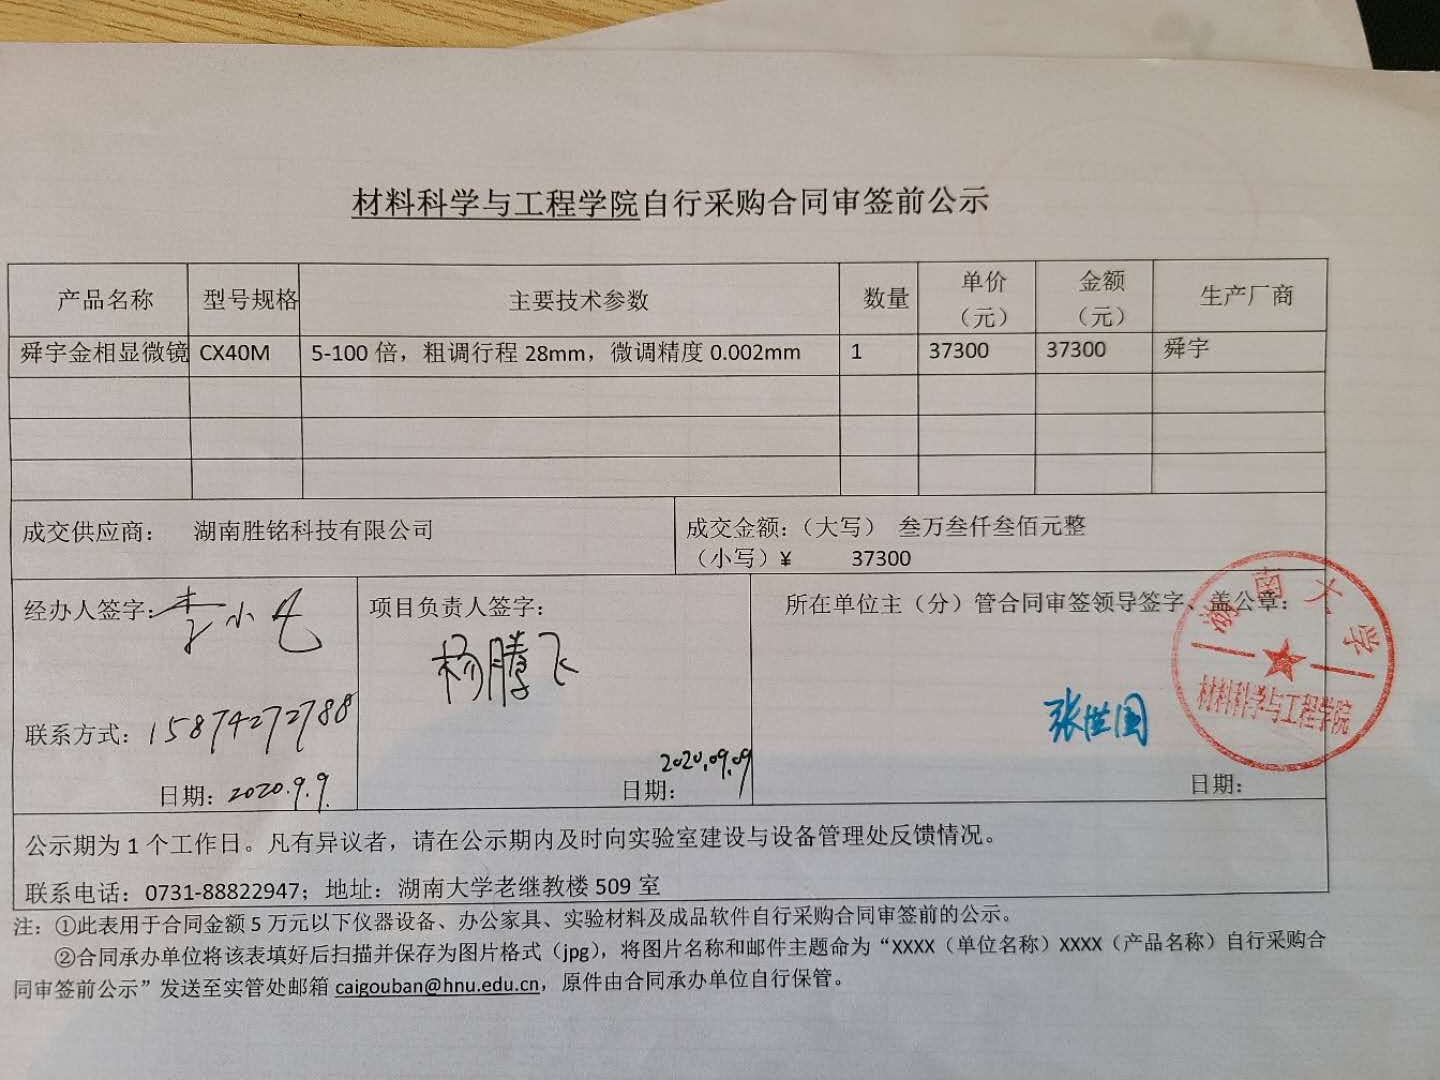 材料科学与工程学院自行采购合同审签前公示
产品名称 型号规格 主要技术参数 数量 单价（元） 金额（元） 生产厂商
舜宇金相显微镜 CX40M 5-100 倍，粗调行程 28mm，微调精度 0.002mm 1 37300 37300 舜宇
成交供应商： 湖南胜铭科技有限公司
成交金额：（大写） 叁万叁仟叁佰元整
（小写）¥ 37300
经办人签字：李小
联系方式：15874272788
日期：2020.9.9.
项目负责人签字：
杨腾飞
日期：2020.09.09
所在单位主（分）管合同审签领导签字、盖公章：
张世国
湖南大学
材料科学与工程学院
日期：
公示期为 1 个工作日。凡有异议者，请在公示期内及时向实验室建设与设备管理处反馈情况。
联系电话：0731-88822947；地址：湖南大学老继教楼 509 室
注：①此表用于合同金额 5 万元以下仪器设备、办公家具、实验材料及成品软件自行采购合同审签前的公示。
②合同承办单位将该表填好后扫描并保存为图片格式（jpg），将图片名称和邮件主题命为“XXXX（单位名称）XXXX（产品名称）自行采购合
同审签前公示”发送至实管处邮箱 caigouban@hnu.edu.cn，原件由合同承办单位自行保管。